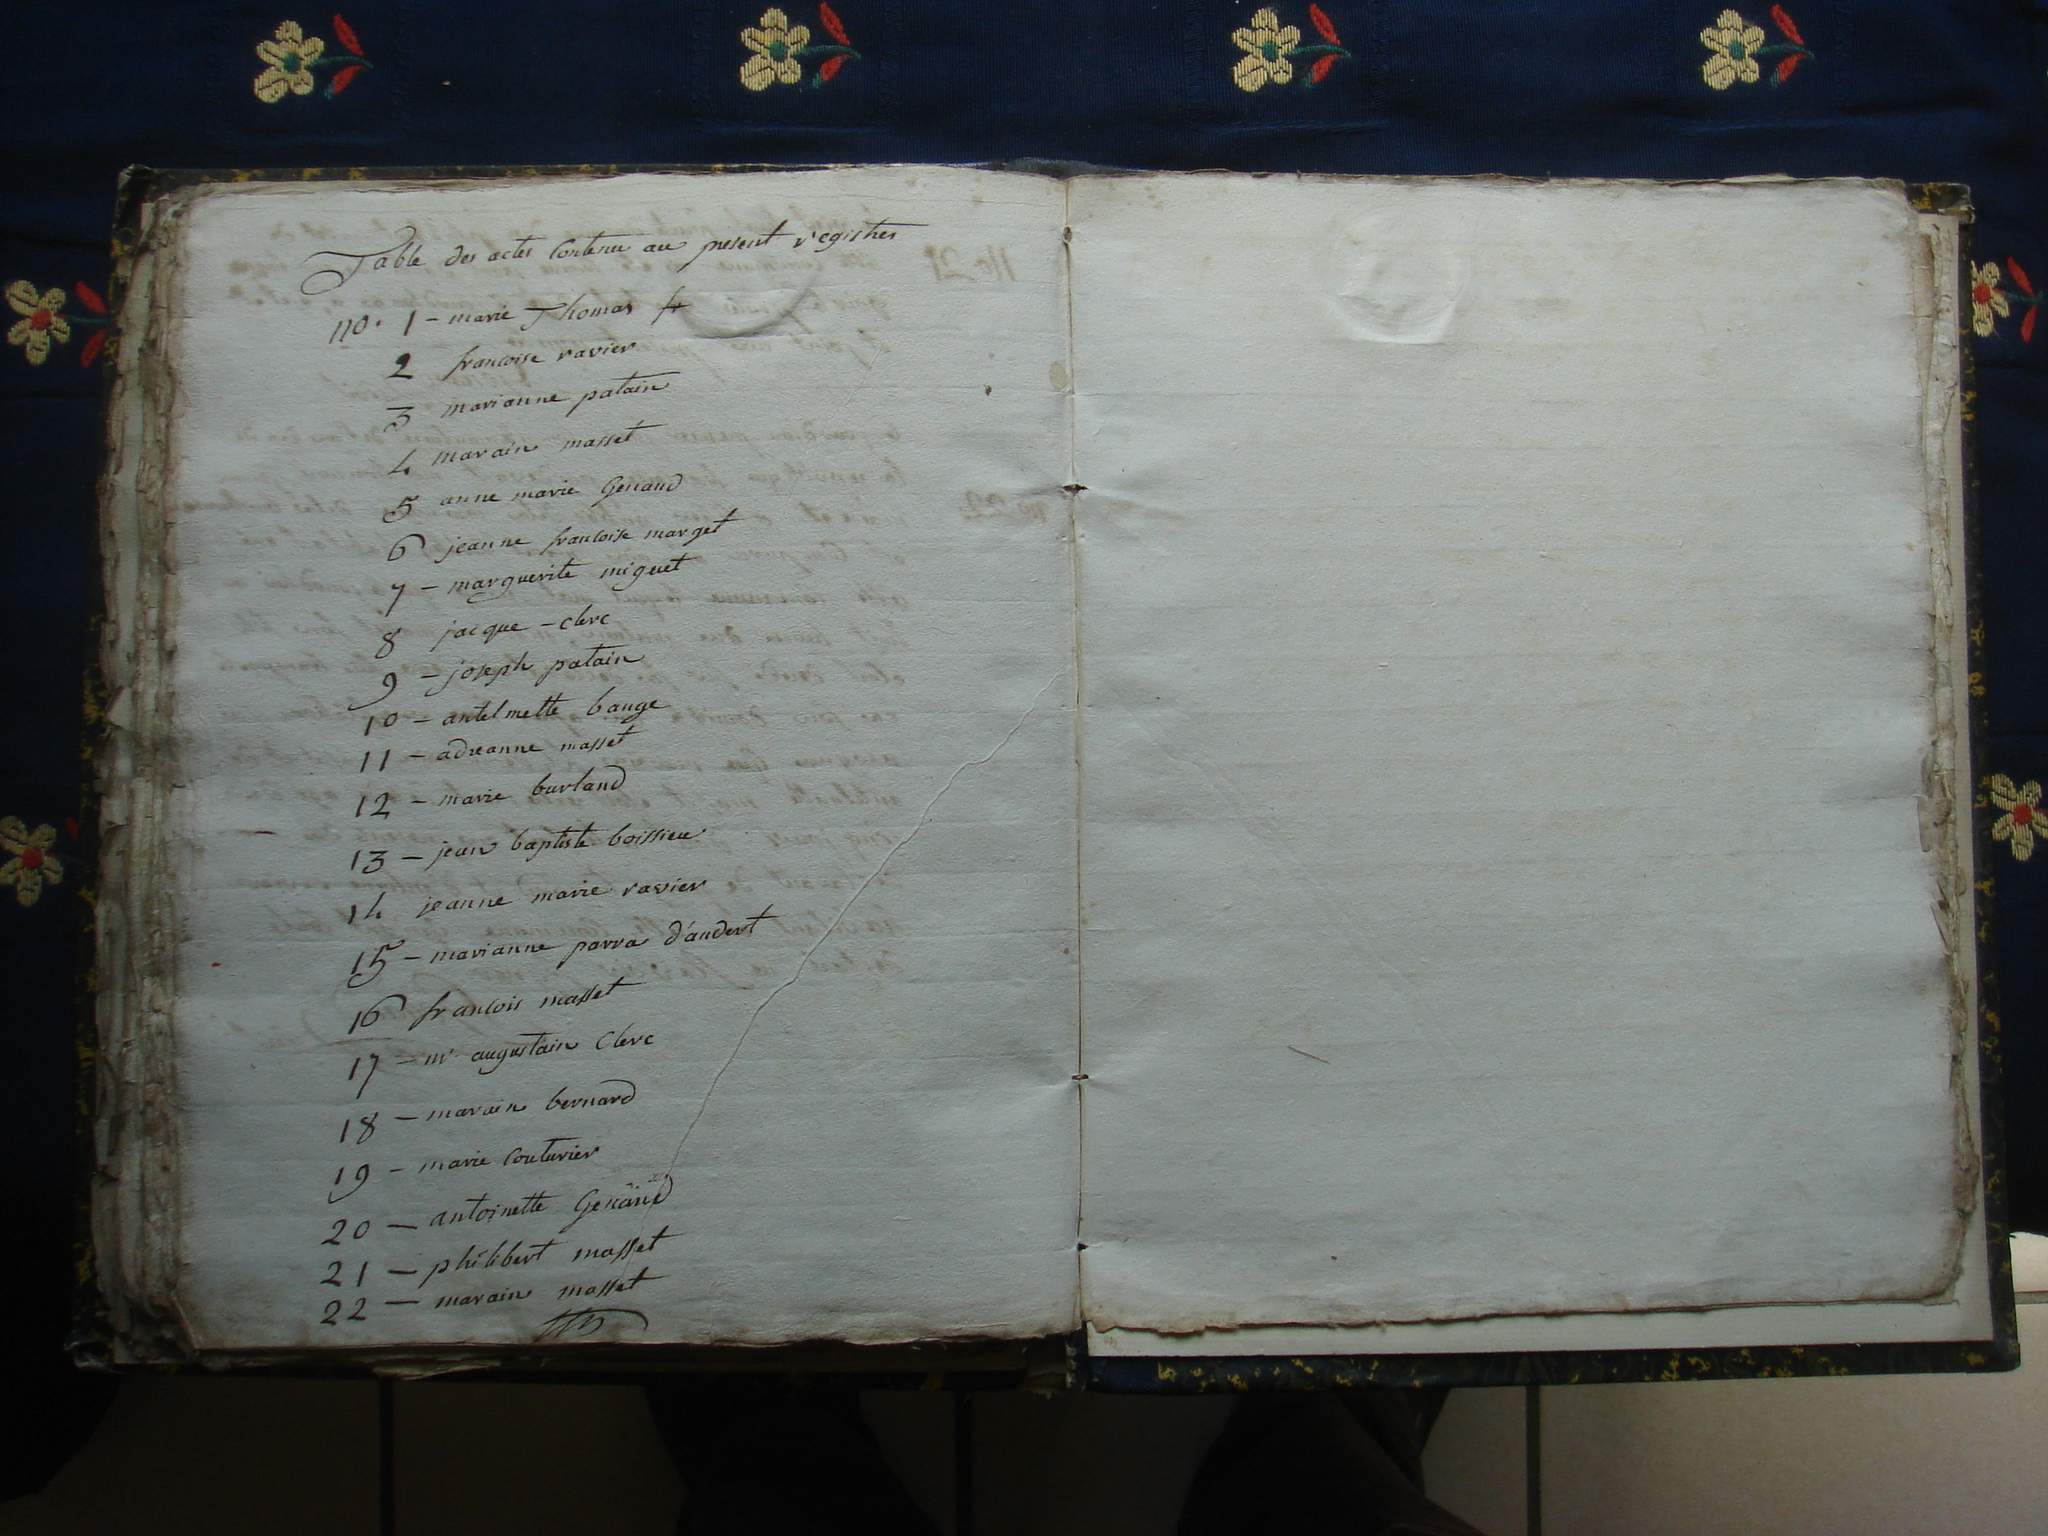 Table des actes contenu au present registres
no. 1 - marie Thomas
2 francoise ravier
3 marianne patain
4 marain masset
5 anne marie Genaud
6 jeanne francoise marget
7 - marguerite miguet
8 jacque - clerc
9 - joseph patain
10 - antelmette bauge
11 - adreanne masset
12 - marie burland
13 - jean baptiste boissieu
14 jeanne marie ravier
15 - marianne parra d'audert
16 francois masset
17 - mr augustain Clerc
18 - marain bernard
19 - marie couturier
20 - antoinette Genand
21 - philibert masset
22 - marain masset